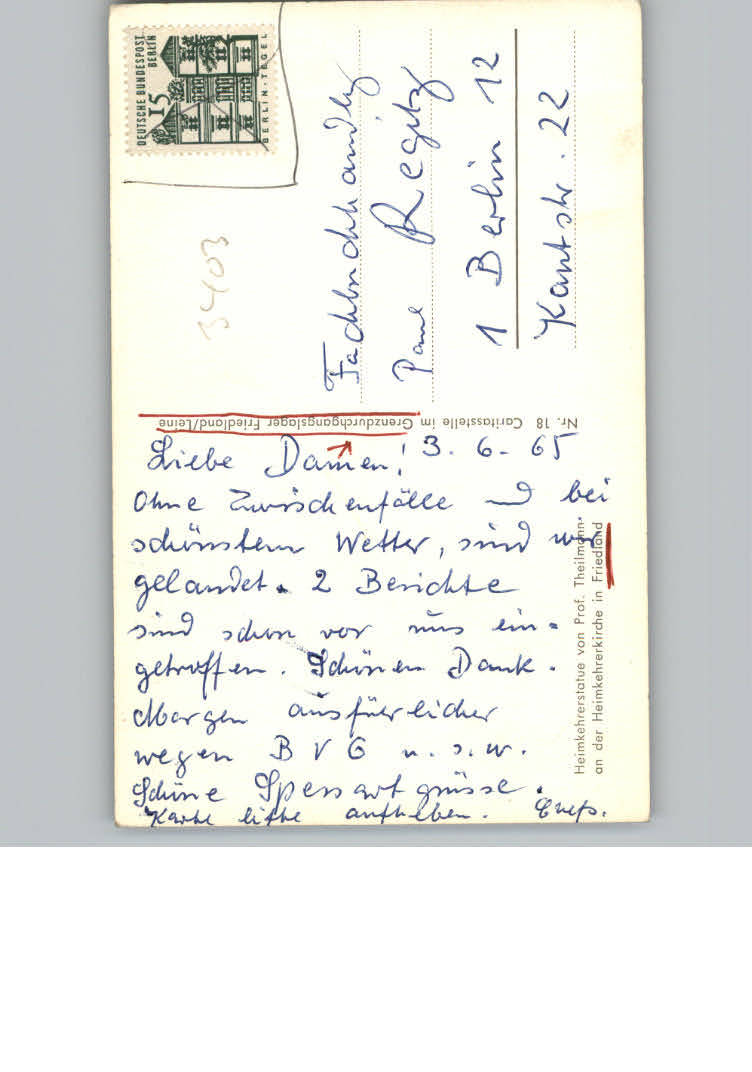 DEUTSCHE BUNDESPOST
BERLIN
15
BERLIN-TEGEL
3403
Fachbuchhandlg
Paul Regitz
1 Berlin 12
Kantstr. 22
Nr. 18 Caritasstelle im Grenzdurchgangslager Friedland/Leine
3. 6. 65
Liebe Damen!
Ohne Zwischenfälle und bei
schönstem Wetter, sind wir
gelandet. 2 Berichte
sind schon vor uns ein=
getroffen. Schönen Dank.
Morgen ausfüerlicher
wegen B V G u. s. w.
Schöne Spessartgrüsse.
Karte bitte aufheben.
Heimkehrerstatue von Prof. Theilmann-
an der Heimkehrerkirche in Friedland